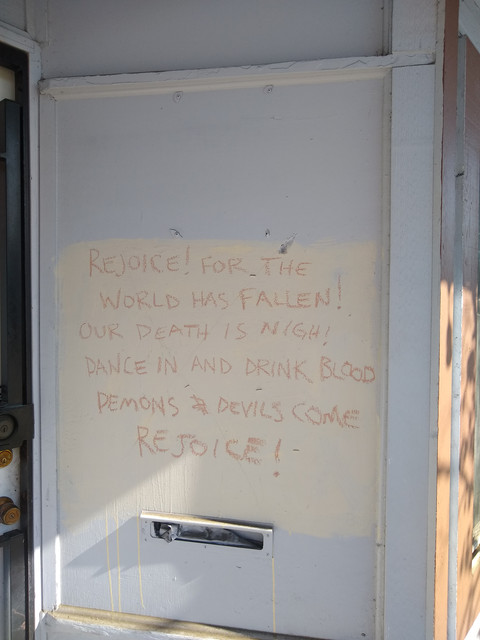 REJOICE! FOR THE
WORLD HAS FALLEN!
OUR DEATH IS NIGH!
DANCE IN AND DRINK BLOOD
DEMONS & DEVILS COME
REJOICE!